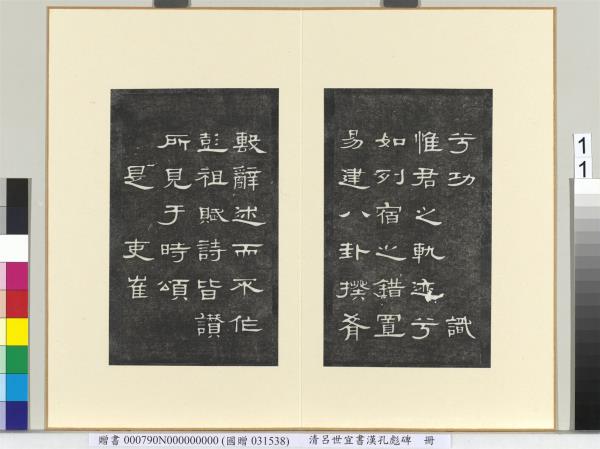 兮功　識
惟君之軌迹兮
如列宿之錯置
易建八卦揆肴
毄辭述而不作
彭祖賦詩皆讚
所見于時頌
是　吏崔
11
贈書 000790N000000000 (國贈 031538)　清呂世宜書漢孔彪碑　冊